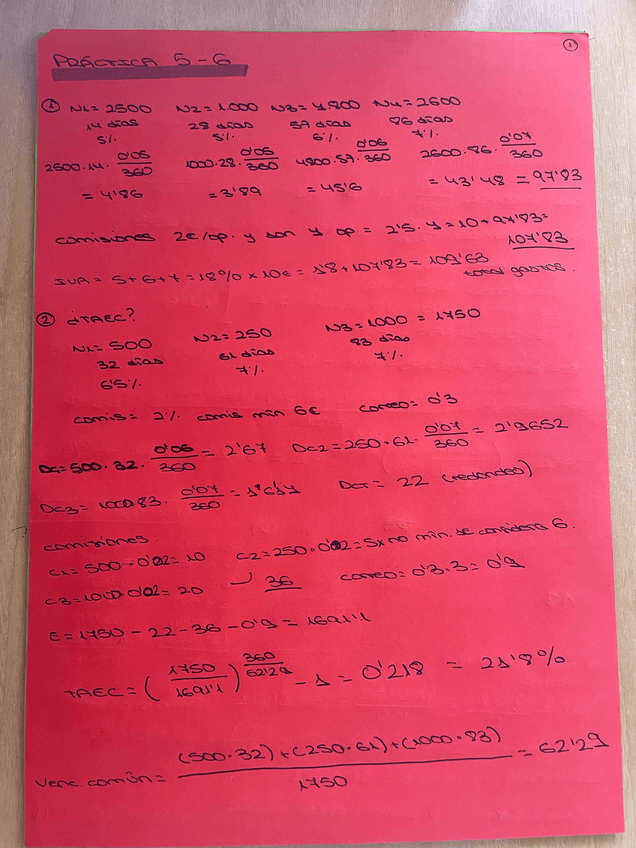 ①
PRÁCTICA 5-6
① N1=2500 N2=1000 N3=4800 N4=2600
14 días 28 días 57 días 86 días
5% 5% 6% 7%
2500·14·0'05/360 1000·28·0'05/360 4800·57·0'06/360 2600·86·0'07/360
= 4'86 =3'89 =45'6 =43'48 = 97'83
comisiones 2€/op. y son 4 op = 2'5·4=10+97'83=
107'83
IVA = 5+6+7=18% x 10€ = 1'8+107'83= 109'63
total gastos.
② ¿TAEC?
N1=500 N2=250 N3=1000 = 1750
32 días 61 días 83 días
6'5% 7% 7%
comis = 2% comis min 6€ correo= 0'3
Dc1=500·32·0'06/360= 2'67 Dc2=250·61·0'07/360= 2'9652
Dc3=1000·83·0'07/360= DcT= 22 (redondeo)
comisiones.
C1=500·0'02=10 C2=250·0'02=5x no min. se considera 6.
C3=1000·0'02=20 36 correo=0'3·3=0'9
E=1750-22-36-0'9=1691'1
TAEC=(1750/1691'1)^360/62'29 -1=0'218 = 21'8%
Venc. común= (500·32)+(250·61)+(1000·83)/1750 = 62'29